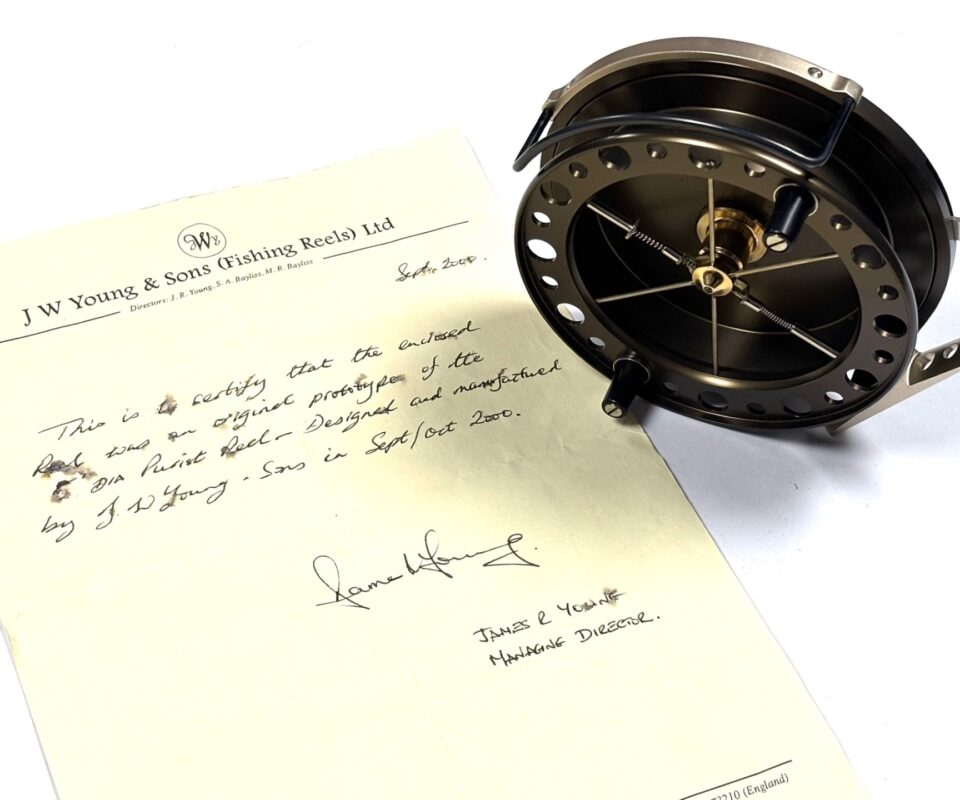 JWY
J W Young & Sons (Fishing Reels) Ltd
Directors: J. R. Young, S. A. Bayliss, M. R. Bayliss
Sept, 2000.
This is to certify that the enclosed
Reel was an original prototype of the
DIA Purist Reel - Designed and manufactured
by J W Young & Sons in Sept/Oct 2000.
James R Young
JAMES R YOUNG
MANAGING DIRECTOR.
210 (England)